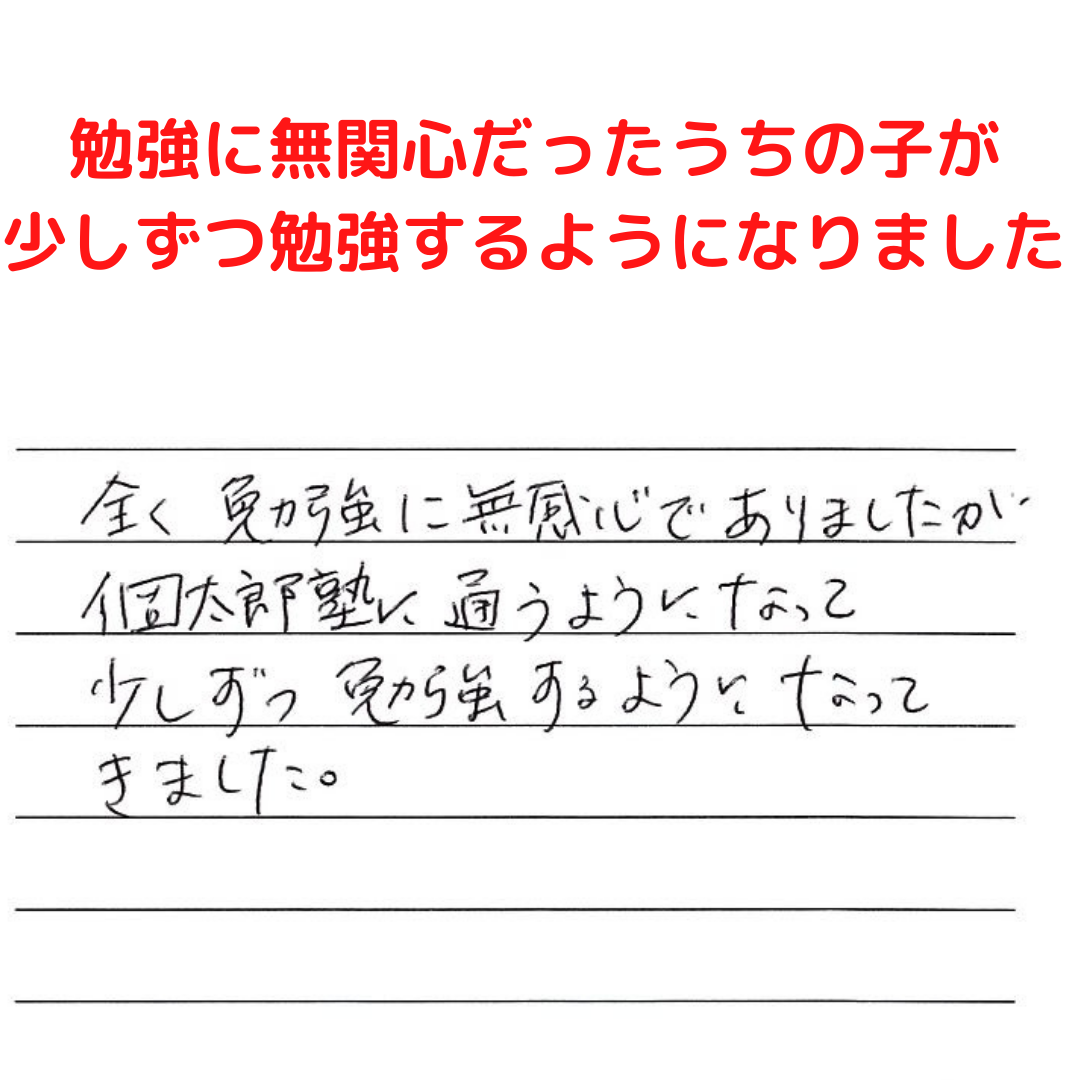 勉強に無関心だったうちの子が
少しずつ勉強するようになりました
全く勉強に無感心でありましたが
個太郎塾に通うようになって
少しずつ勉強するようになって
きました。